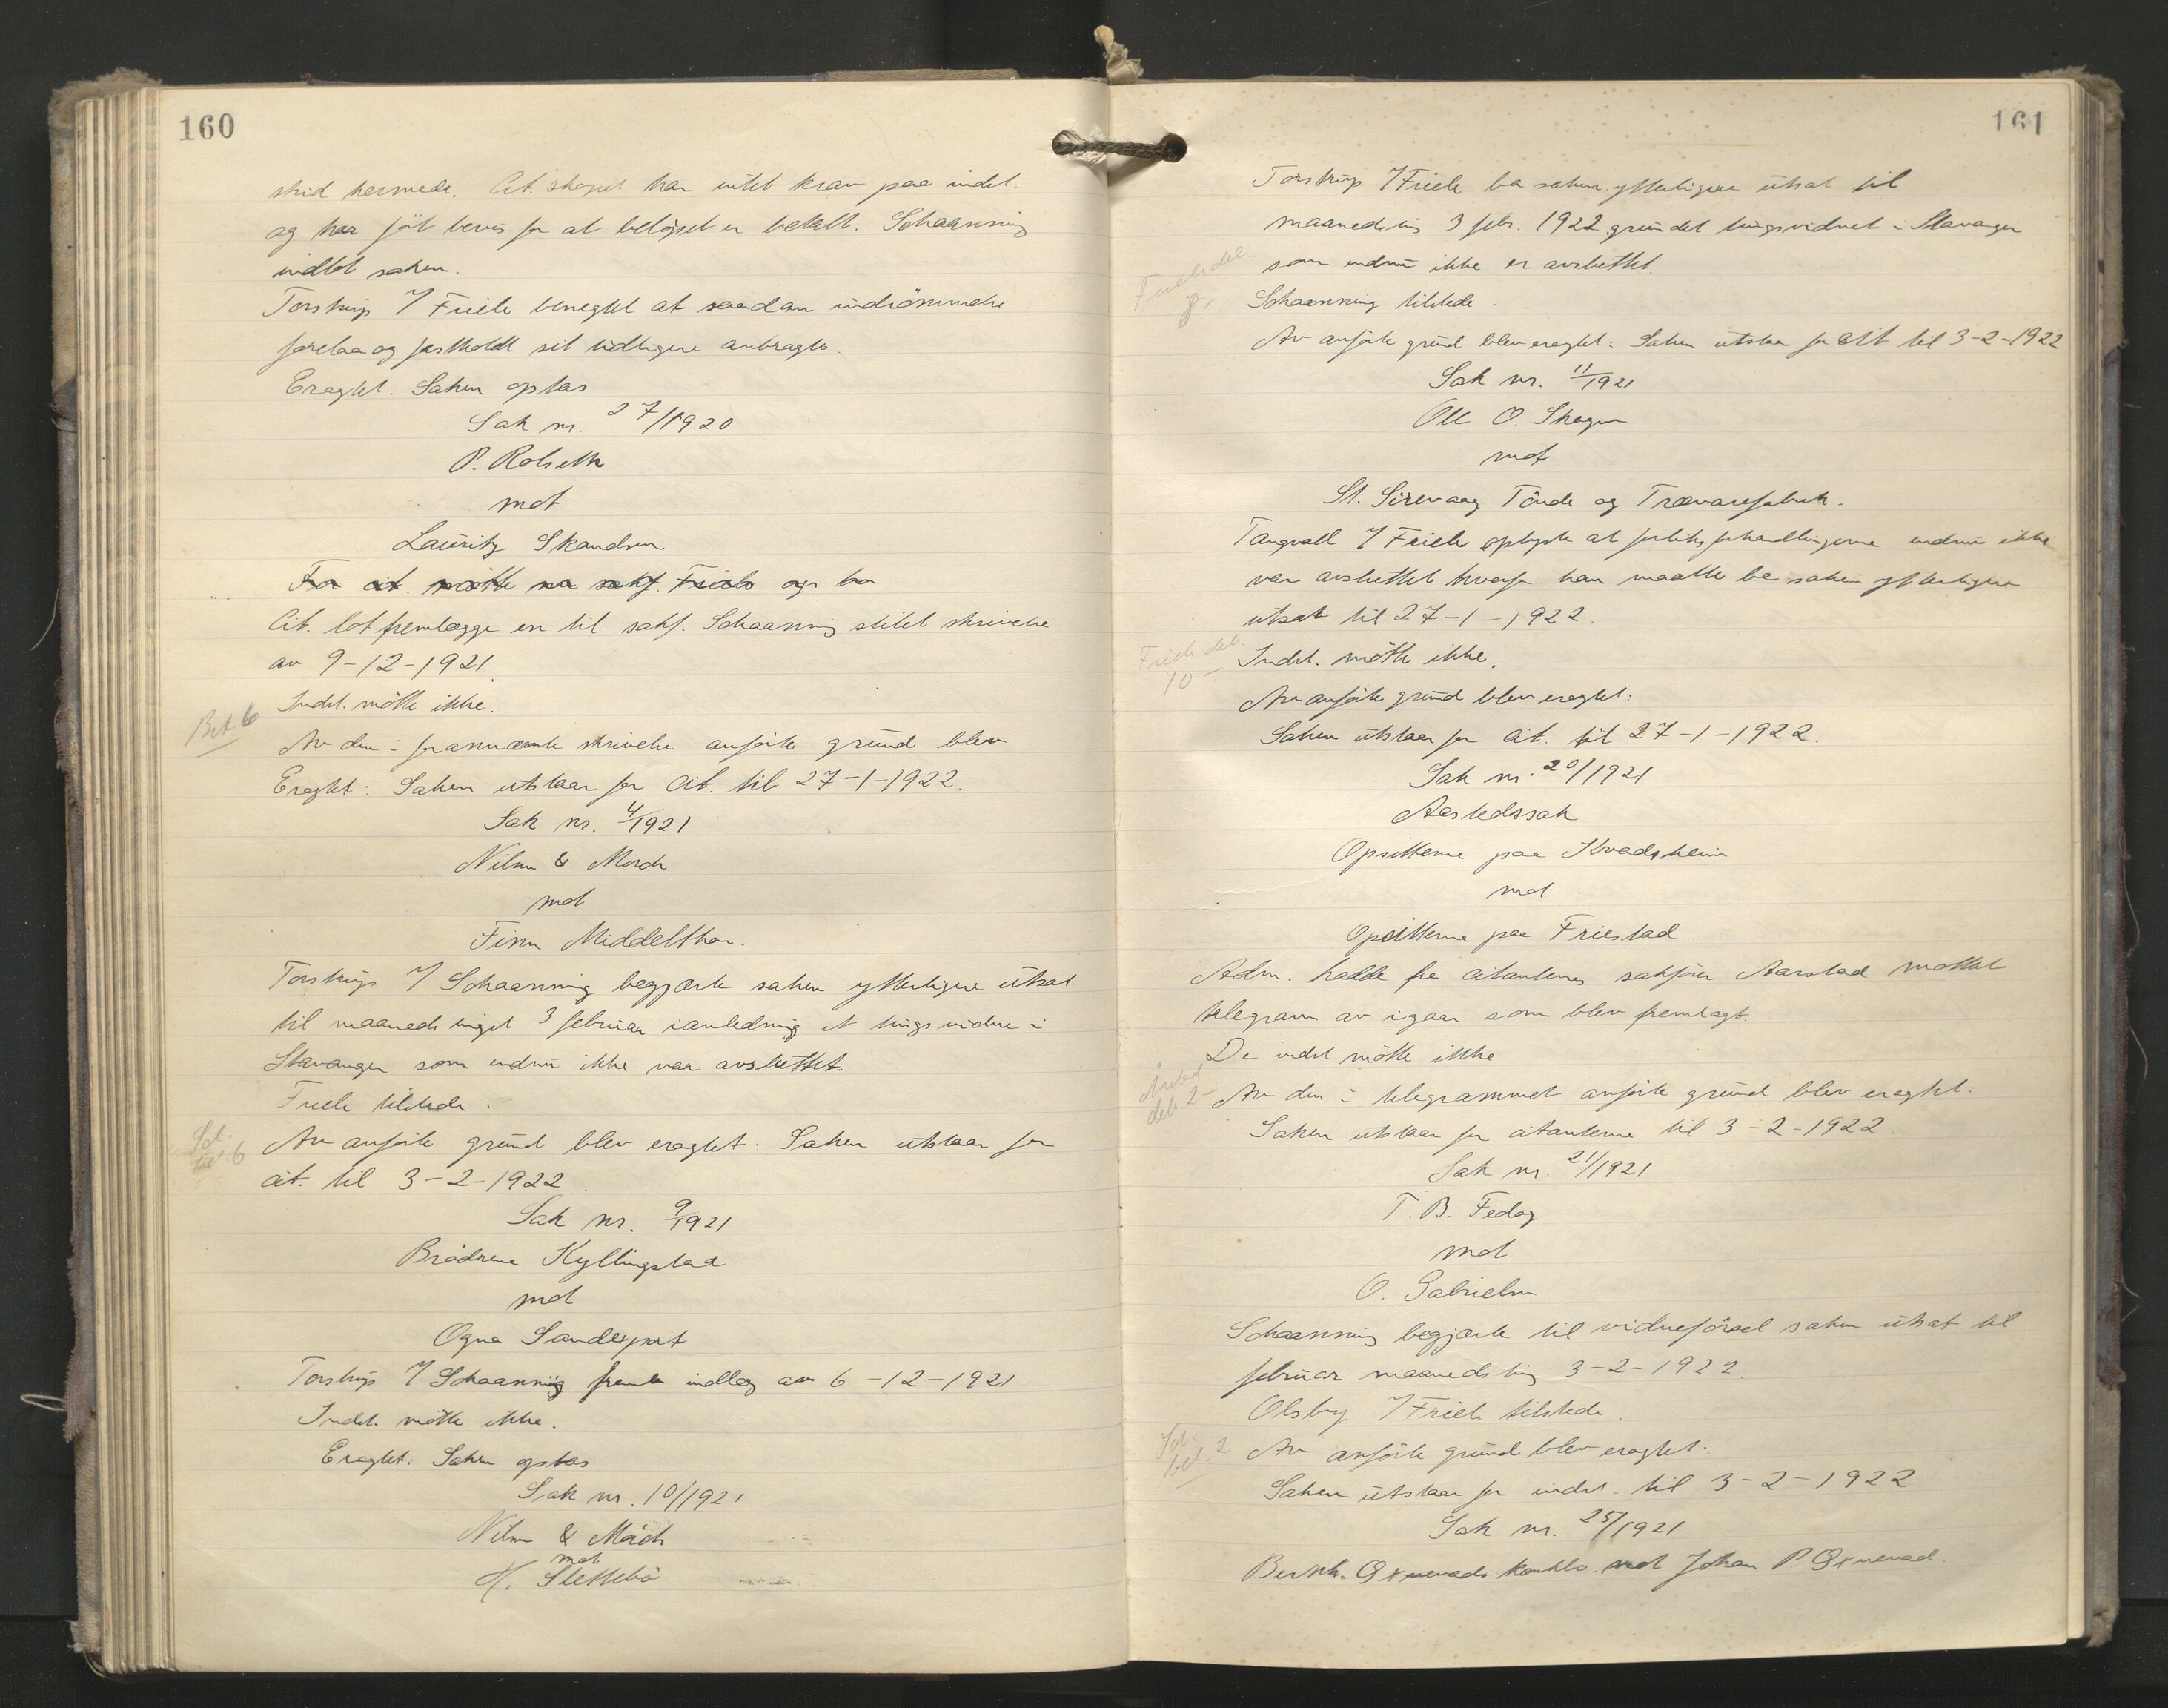 160
strid hermede. Cit. skapet har intet krav paa indst.
og har fåt bevis for at belöpet er betalt. Schaanning
indlot saken.
Torstrup / Friele benegtet at saadan indrömmelse
forelaa og fastholdt sit tidligere anbragte.
Eragtet: Saken optas
Sak nr. 27/1920
P. Rolseth
mot
Lauritz Skandsen.
For cit. mötte na sakf. Friele og ba
Cit. lot fremlægge en til sakf. Schaanning stilet skrivelse
av 9-12-1921.
Indst. mötte ikke.
Bet 6
Av den i forannævnte skrivelse anförte grund blev
Eragtet: Saken utstaar for Cit. til 27-1-1922.
Sak nr. 4/1921
Nilsen & Morch
mot
Finn Middelthon.
Torstrup / Schaanning begjærte saken ytterligere utsat
til maanedstinget 3 februar i anledning et tingsvidne i
Stavanger som endnu ikke var avsluttet.
Friele tilstede.
Sch.
bet. 6
Av anförte grund blev eragtet: Saken utstaar for
cit. til 3-2-1922.
Sak nr. 9/1921
Brödrene Kyllingstad
mot
Ogna Sandexport
Torstrup / Schaanning freml. indlæg av 6-12-1921
Indst. mötte ikke.
Eragtet: Saken optas
Sak nr. 10/1921
Nilsen & Mörch
mot
H. Slettebö
161
Torstrup / Friele ba saken ytterligere utsat til
maanedsting 3 febr. 1922 grundet tingsvidnet i Stavanger
som endnu ikke er avsluttet.
Friele deb.
8,
Schaanning tilstede.
Av anförte grund blev eragtet: Saken utstaar for cit til 3-2-1922
Sak nr. 11/1921
Ole O. Skogen
mot
St. Sirevaag Tönde og Trævarefabrik.
Tangvall / Friele oplyste at forliksforhandlingerne endnu ikke
var avsluttet hvorfor han maatte be saken ytterligere
utsat til 27-1-1922.
Friele deb.
10
Indst. mötte ikke.
Av anförte grund blev eragtet:
Saken utstaar for Cit. til 27-1-1922.
Sak nr. 20/1921
Aastedssak
Opsitterne paa Kvadsheim
mot
Opsitterne paa Friestad.
Adm. hadde fra citantenes sakförer Aarstad mottat
telegram av igaar som blev fremlagt.
De indst mötte ikke
Årstad
deb. 2-
Av den i telegrammet anförte grund blev eragtet:
Saken utstaar for citanterne til 3-2-1922.
Sak nr. 21/1921
T. B. Fedog
mot
O. Gabrielsen
Schaanning begjærte til vidneförsel saken utsat til
februar maanedsting 3-2-1922.
Olsby / Friele tilstede.
Sch.
bet. 2
Av anförte grund blev eragtet:
Saken utstaar for indst. til 3-2-1922
Sak nr. 25/1921
Bernh. Oxnevads konkbo mot Johan P. Oxnevad.